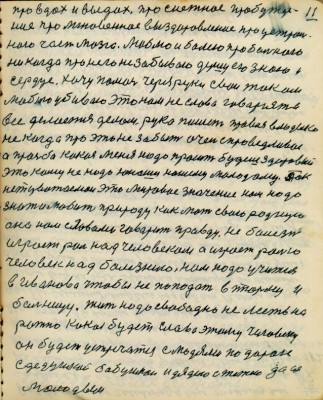 про вдох и выдах, про сместное пробужде-
ние про мгновенное выздоровление про централ.
ного част мозго. Люблю и болею про больного 11
никогда про него не забываю душу его знаю и
сердце. Хочу помощ через руки свои таком
убиваю это нам не слова говарять
все делается делом, рука пишеть правая владыка
не когда про это не забыт очен справедливое
а празба какая меня надо просит будеш здоровый
это кому не надо юноши нашему молодому. Так
это мировое значение нам надо
знат и любит природу как мат свою родную
она нам словами говарит правду, не болезн
играет рол над человеком а играет рол
человек над болезнию, нам надо учится
в Иванова чтобы не попадат в тюрму и
болницу. жит надо свободно не лезть на
рожно какая будет слава этому человеку
он будеш встречатся с людями по дороге
с дедушкай бабушкой и дядею с тетею да за
молодым